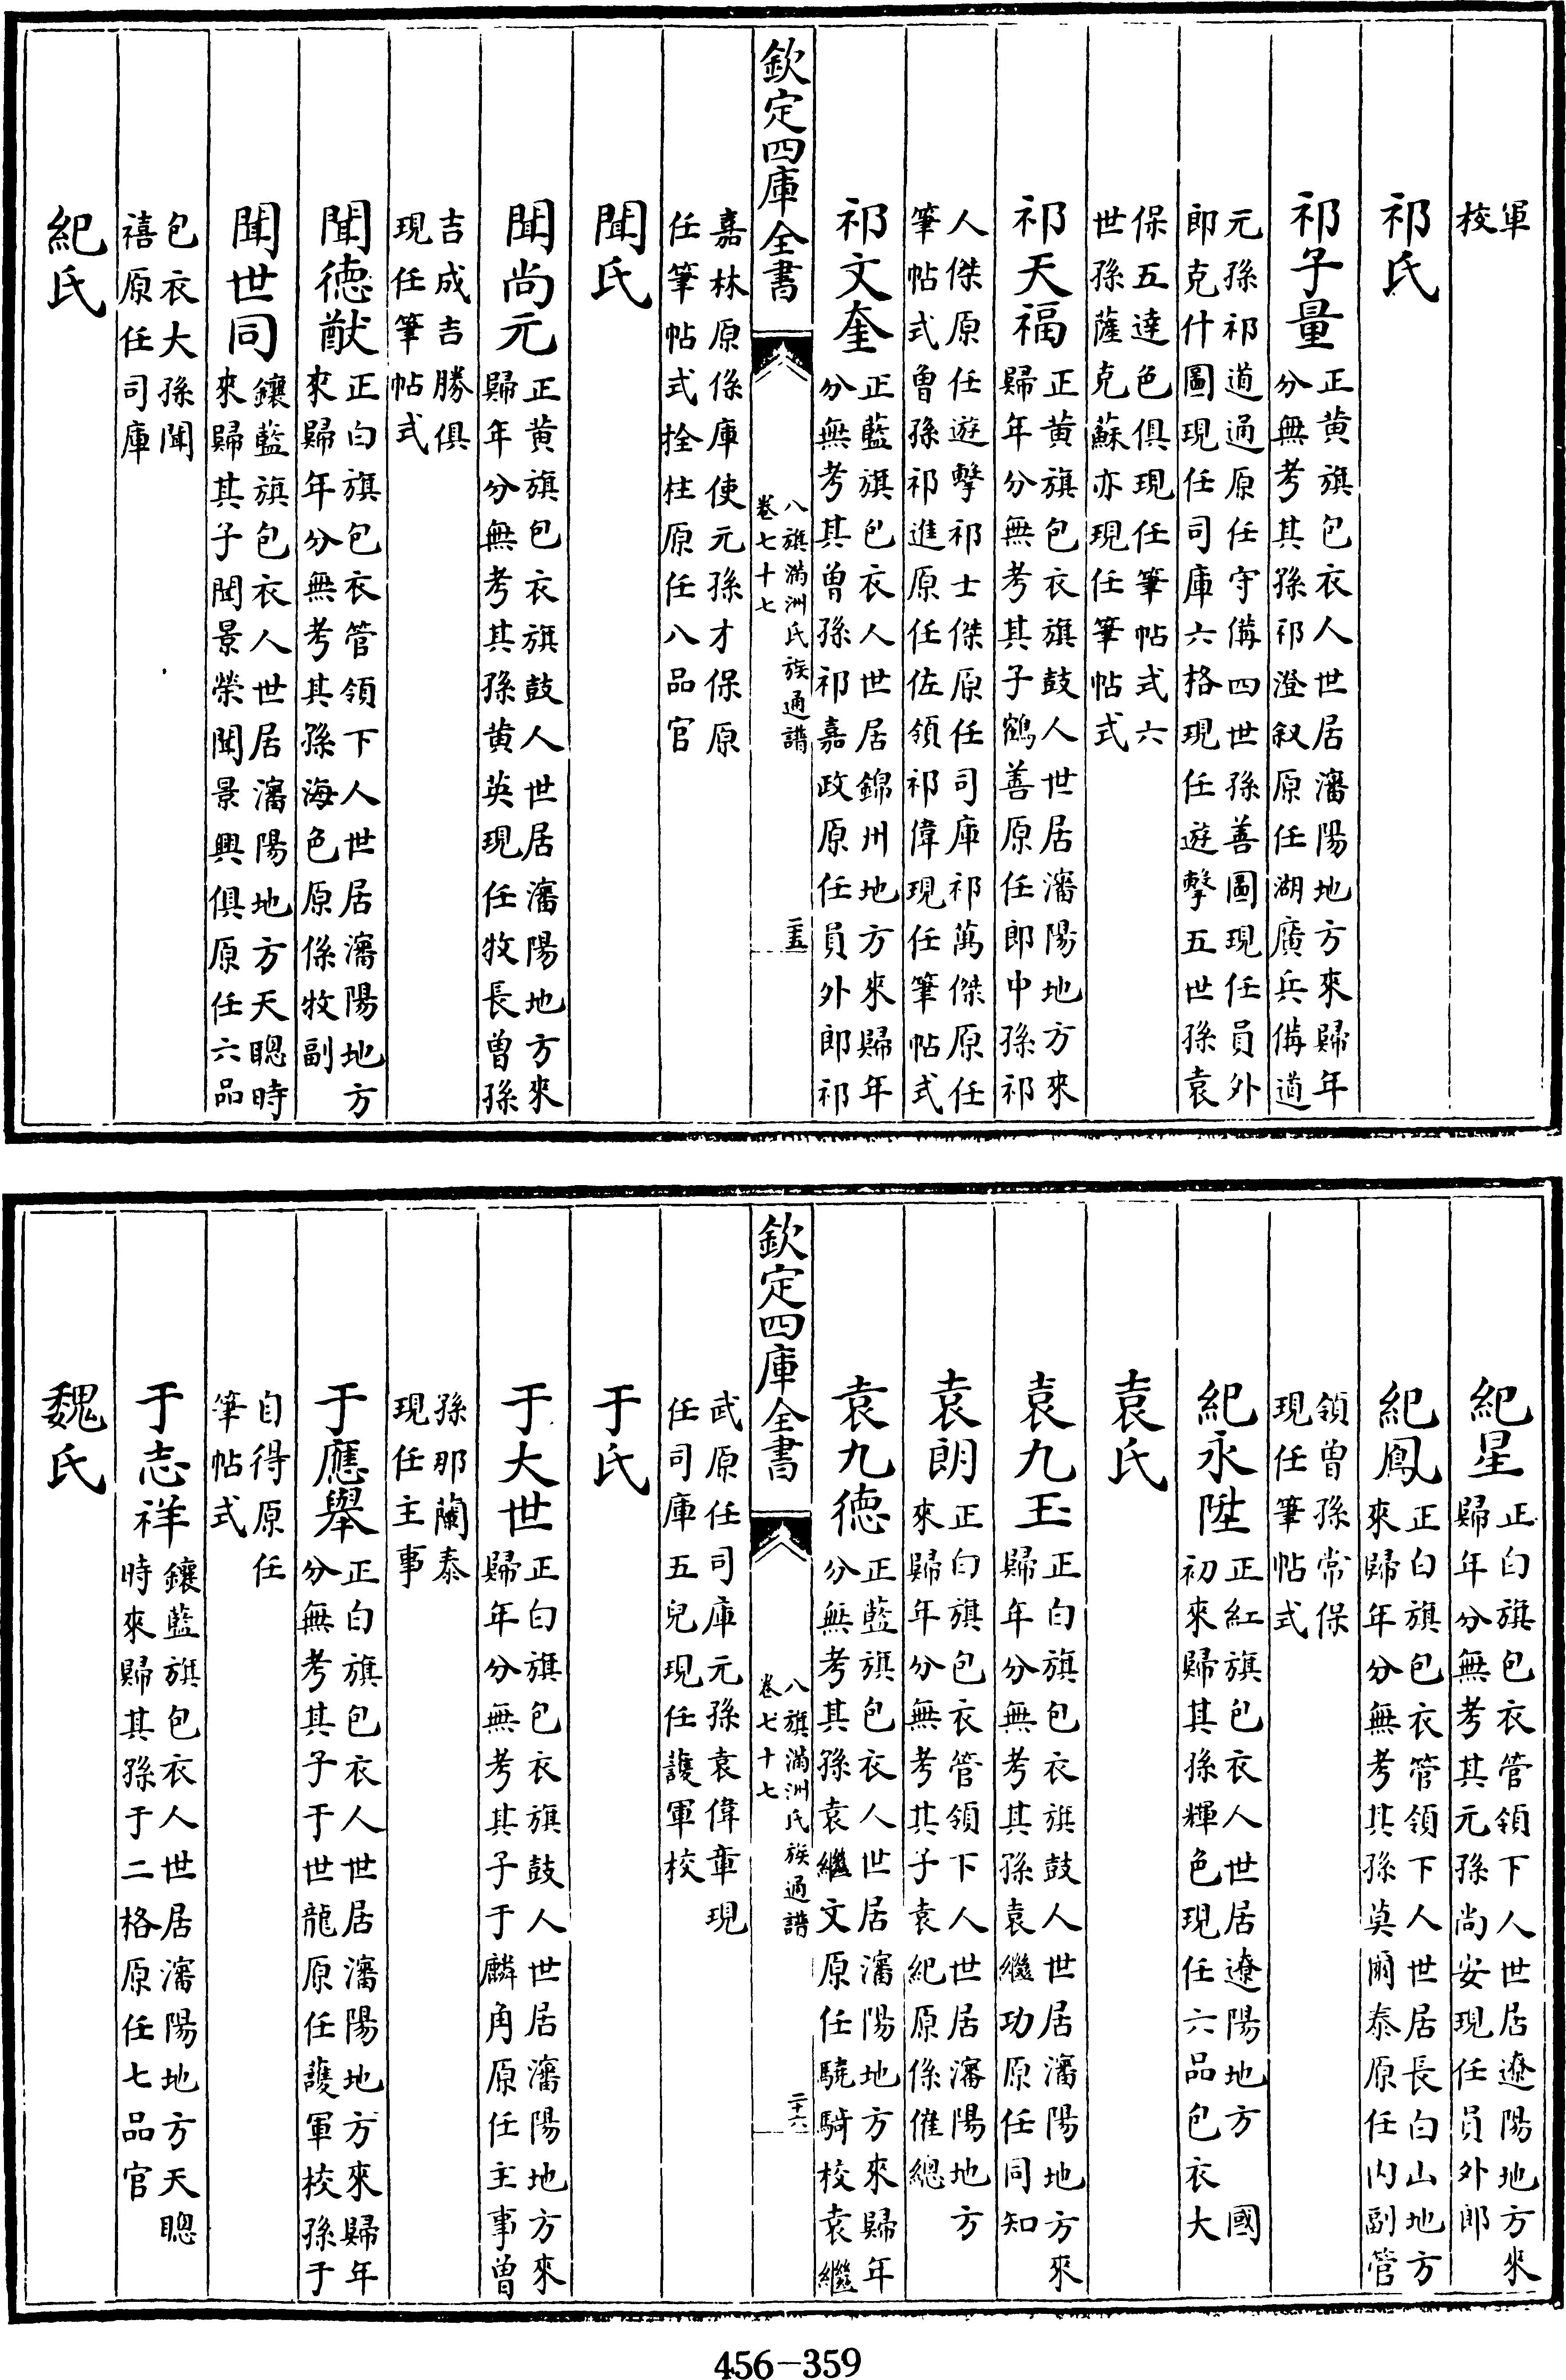 軍
校
祁氏
祁子量
正黄旗包衣人世居瀋陽地方來歸年
分無考其孫祁澄叙原任湖廣兵備道
元孫祁道通原任守備四世孫善圖現任員外
郎克什圖現任司庫六格現任遊擊五世孫袁
保五達色俱現任筆帖式六
世孫薩克蘇亦現任筆帖式
祁天福
正黄旗包衣旗鼓人世居瀋陽地方來
歸年分無考其子鶴善原任郎中孫祁
人傑原任遊擊祁士傑原任司庫祁萬傑原任
筆帖式曽孫祁進原任佐領祁偉現任筆帖式
祁文奎
正藍旗包衣人世居錦州地方來歸年
分無考其曽孫祁嘉政原任員外郎祁
欽定四庫全書
八旗滿洲氏族通譜
卷七十七
二十五
嘉林原係庫使元孫才保原
任筆帖式拴柱原任八品官
聞氏
聞尚元
正黄旗包衣旗鼓人世居瀋陽地方來
歸年分無考其孫黄英現任牧長曽孫
吉成吉勝俱
現任筆帖式
聞德猷
正白旗包衣管領下人世居瀋陽地方
來歸年分無考其孫海色原係牧副
聞世同
鑲藍旗包衣人世居瀋陽地方天聰時
來歸其子聞景榮聞景興俱原任六品
包衣大孫聞
禧原任司庫
紀氏
紀星
正白旗包衣管領下人世居遼陽地方來
歸年分無考其元孫尚安現任員外郎
紀鳳
正白旗包衣管領下人世居長白山地方
來歸年分無考其孫莫爾泰原任内副管
領曽孫常保
現任筆帖式
紀永陞
正紅旗包衣人世居遼陽地方 國
初來歸其孫輝色現任六品包衣大
袁氏
袁九玉
正白旗包衣旗鼓人世居瀋陽地方來
歸年分無考其孫袁繼功原任同知
袁朗
正白旗包衣管領下人世居瀋陽地方
來歸年分無考其子袁紀原係催總
袁九德
正藍旗包衣人世居瀋陽地方來歸年
分無考其孫袁繼文原任驍騎校袁繼
欽定四庫全書
八旗滿洲氏族通譜
卷七十七
二十六
武原任司庫元孫袁偉章現
任司庫五兒現任護軍校
于氏
于大世
正白旗包衣旗鼓人世居瀋陽地方來
歸年分無考其子于麟角原任主事曽
孫那蘭泰
現任主事
于應舉
正白旗包衣人世居瀋陽地方來歸年
分無考其子于世龍原任護軍校孫于
自得原任
筆帖式
于志祥
鑲藍旗包衣人世居瀋陽地方天聰
時來歸其孫于二格原任七品官
魏氏
456-359